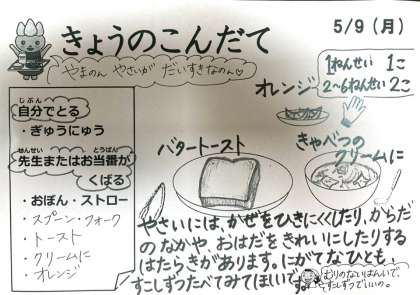 きょうのこんだて
5/9（月）
やまのん やさいが だいすきなのん♡
1ねんせい 1こ
2~6ねんせい 2こ
オレンジ
じぶん
自分でとる
・ぎゅうにゅう
せんせい とうばん
先生またはお当番が
くばる
・おぼん・ストロー
・スプーン・フォーク
・トースト
・クリームに
・オレンジ
バタートースト
きゃべつの
クリームに
やさいには、かぜをひきにくくしたり、からだ
のなかや、おはだをきれいにしたりする
はたらきがあります。にがてなひとも、
すこしずつたべてみてほしいです。
むりのないはんいで、
すこしずつでいいの。